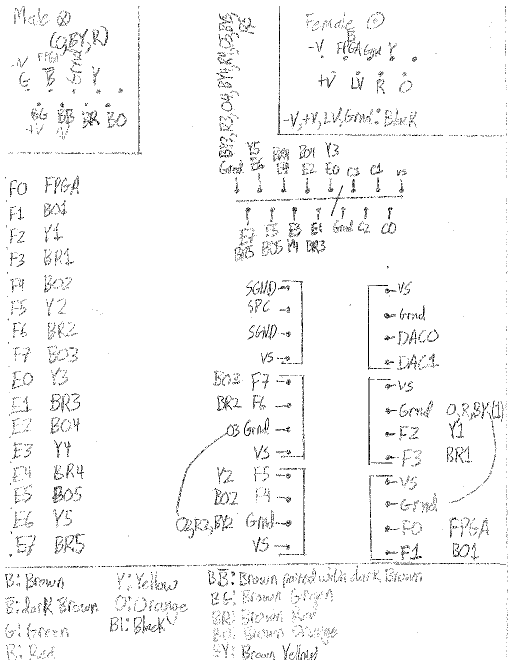 Male
(O,BY,R)
-V FPGA Grnd
G B Y
BG BB BR BO
+V -V
Female
-V FPGA Grnd Y
B
+V LV R O
-V,+V,LV,Grnd: Black
Y5 BR4 BO4 Y3
Grnd E6 E4 E2 E0 C3 C1 VS
E7 E5 E3 E1 Grnd C2 C0
BR5 BO5 Y4 BR3
F0 FPGA
F1 BO1
F2 Y1
F3 BR1
F4 BO2
F5 Y2
F6 BR2
F7 BO3
E0 Y3
E1 BR3
E2 BO4
E3 Y4
E4 BR4
E5 BO5
E6 Y5
E7 BR5
SGND
SPC
SGND
VS
BO3 F7
BR2 F6
O3 Grnd
VS
Y2 F5
BO2 F4
O2,R2,BY2 Grnd
VS
VS
Grnd
DAC0
DAC1
VS
Grnd O,R,BY,(1)
F2 Y1
F3 BR1
VS
Grnd
F0 FPGA
F1 BO1
B: Brown
B: dark Brown
G: Green
R: Red
Y: Yellow
O: Orange
Bl: Black
BB: Brown paired with dark Brown
BG: Brown Green
BR: Brown Red
BO: Brown Orange
BY: Brown Yellow